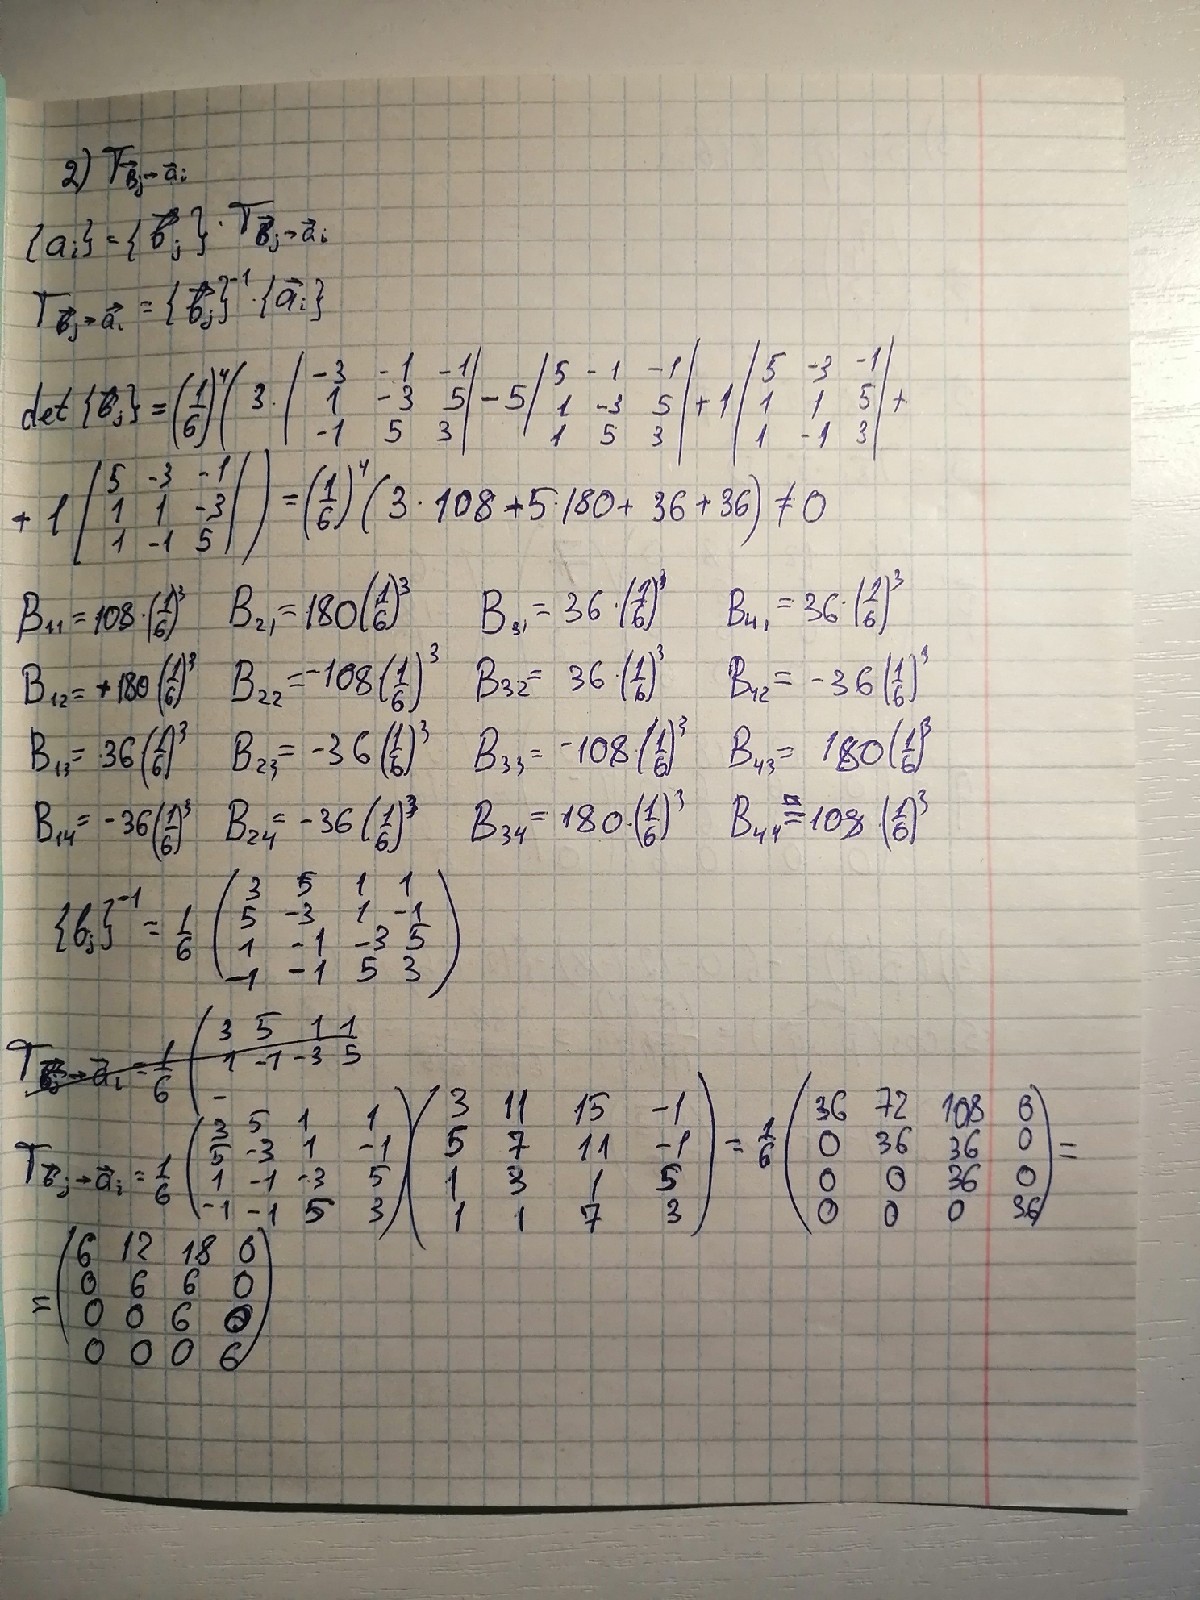 2) T b⃗j→a⃗i
{ai} = {b⃗j} · T b⃗j→a⃗i
T b⃗j→a⃗i = {b⃗j}⁻¹ · {a⃗i}
det {b⃗j} = (1/6)⁴ ( 3 · | -3 -1 -1 ; 1 -3 5 ; -1 5 3 | - 5 | 5 -1 -1 ; 1 -3 5 ; 1 5 3 | + 1 | 5 -3 -1 ; 1 1 5 ; 1 -1 3 | +
+ 1 | 5 -3 -1 ; 1 1 -3 ; 1 -1 5 | ) = (1/6)⁴ ( 3 · 108 + 5 · 180 + 36 + 36 ) ≠ 0
B₁₁ = 108 · (1/6)³ B₂₁ = 180 (1/6)³ B₃₁ = 36 · (1/6)³ B₄₁ = 36 · (1/6)³
B₁₂ = +180 (1/6)³ B₂₂ = -108 (1/6)³ B₃₂ = 36 · (1/6)³ B₄₂ = -36 (1/6)³
B₁₃ = 36 (1/6)³ B₂₃ = -36 (1/6)³ B₃₃ = -108 · (1/6)³ B₄₃ = 180 (1/6)³
B₁₄ = -36 (1/6)³ B₂₄ = -36 (1/6)³ B₃₄ = 180 · (1/6)³ B₄₄ = 108 · (1/6)³
{bj}⁻¹ = 1/6 ( 3 5 1 1
5 -3 1 -1
1 -1 -3 5
-1 -1 5 3 )
T b⃗j→a⃗i = 1/6 ( 3 5 1 1
1 -1 -3 5
-
T b⃗j→a⃗i = 1/6 ( 3 5 1 1 ; 5 -3 1 -1 ; 1 -1 -3 5 ; -1 -1 5 3 ) ( 3 11 15 -1 ; 5 7 11 -1 ; 1 3 1 5 ; 1 1 7 3 ) = 1/6 ( 36 72 108 0 ; 0 36 36 0 ; 0 0 36 0 ; 0 0 0 36 ) =
= ( 6 12 18 0
0 6 6 0
0 0 6 0
0 0 0 6 )